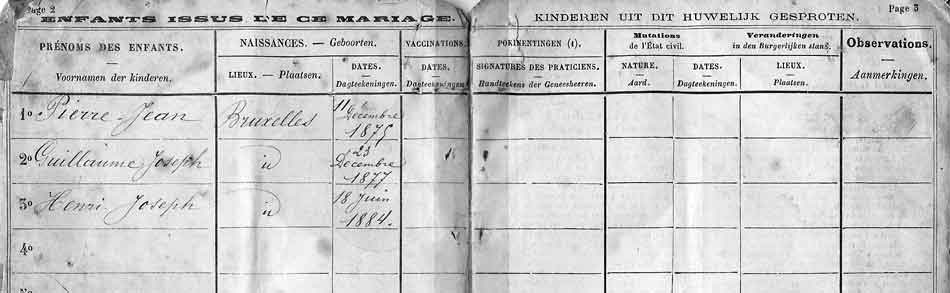 Page 2
Page 3
ENFANTS ISSUS DE CE MARIAGE.
KINDEREN UIT DIT HUWELIJK GESPROTEN.
PRÉNOMS DES ENFANTS.
Voornamen der kinderen.
NAISSANCES. — Geboorten.
LIEUX. — Plaatsen.
DATES.
Dagteekeningen.
VACCINATIONS.
DATES.
Dagteekeningen
POKINENTINGEN (1).
SIGNATURES DES PRATICIENS.
Handteekens der Geneesheeren.
Mutations
de l'État civil.
NATURE.
Aard.
DATES.
Dagteekeningen.
Veranderingen
in den Burgerlijken stand.
LIEUX.
Plaatsen.
Observations.
Aanmerkingen.
1o Pierre Jean Bruxelles 11 Décembre 1875
2o Guillaume Joseph id 23 Décembre 1877
3o Henri Joseph id 18 Juin 1884.
4o